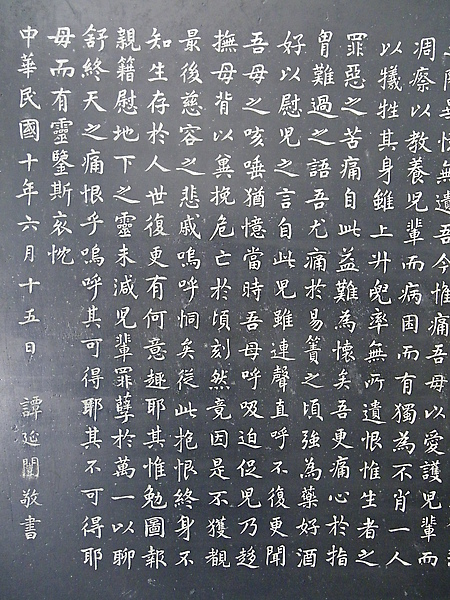 無遺吾今惟痛吾母以愛護兒輩而
凋瘵以教養兒輩而病困而有獨為不肖一人
以犧牲其身雖上升兜率無所遺恨惟生者之
罪惡之苦痛自此益難為懷矣吾更痛心於指
胃難過之語吾尤痛於易簀之頃強為藥好酒
好以慰兒之言自此兒雖連聲直呼不復更聞
吾母之咳唾猶憶當時吾母呼吸迫促兒乃趁
撫母背以冀挽危亡於頃刻然竟因是不獲覩
最後慈容之悲戚嗚呼恫矣從此抱恨終身不
知生存於人世復更有何意趣耶其惟勉圖報
親籍慰地下之靈未減兒輩罪孽於萬一以聊
舒終天之痛恨乎嗚呼其可得耶其不可得耶
母而有靈鑒斯哀忱
中華民國十年六月十五日 譚延闓敬書